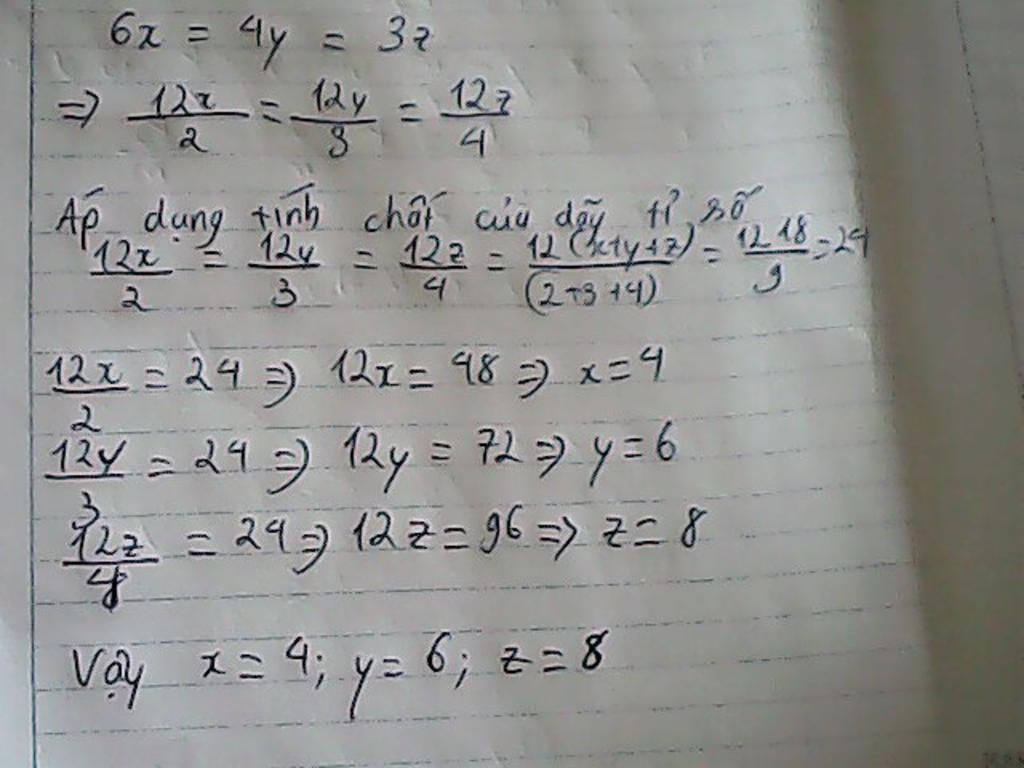 6x = 4y = 3z
=> 12x/2 = 12y/3 = 12z/4
Áp dụng tính chất của dãy tỉ số
12x/2 = 12y/3 = 12z/4 = 12(x+y+z)/(2+3+4) = 12.18/9 = 24
12x/2 = 24 => 12x = 48 => x = 4
12y/3 = 24 => 12y = 72 => y = 6
12z/4 = 24 => 12z = 96 => z = 8
Vậy x = 4; y = 6; z = 8